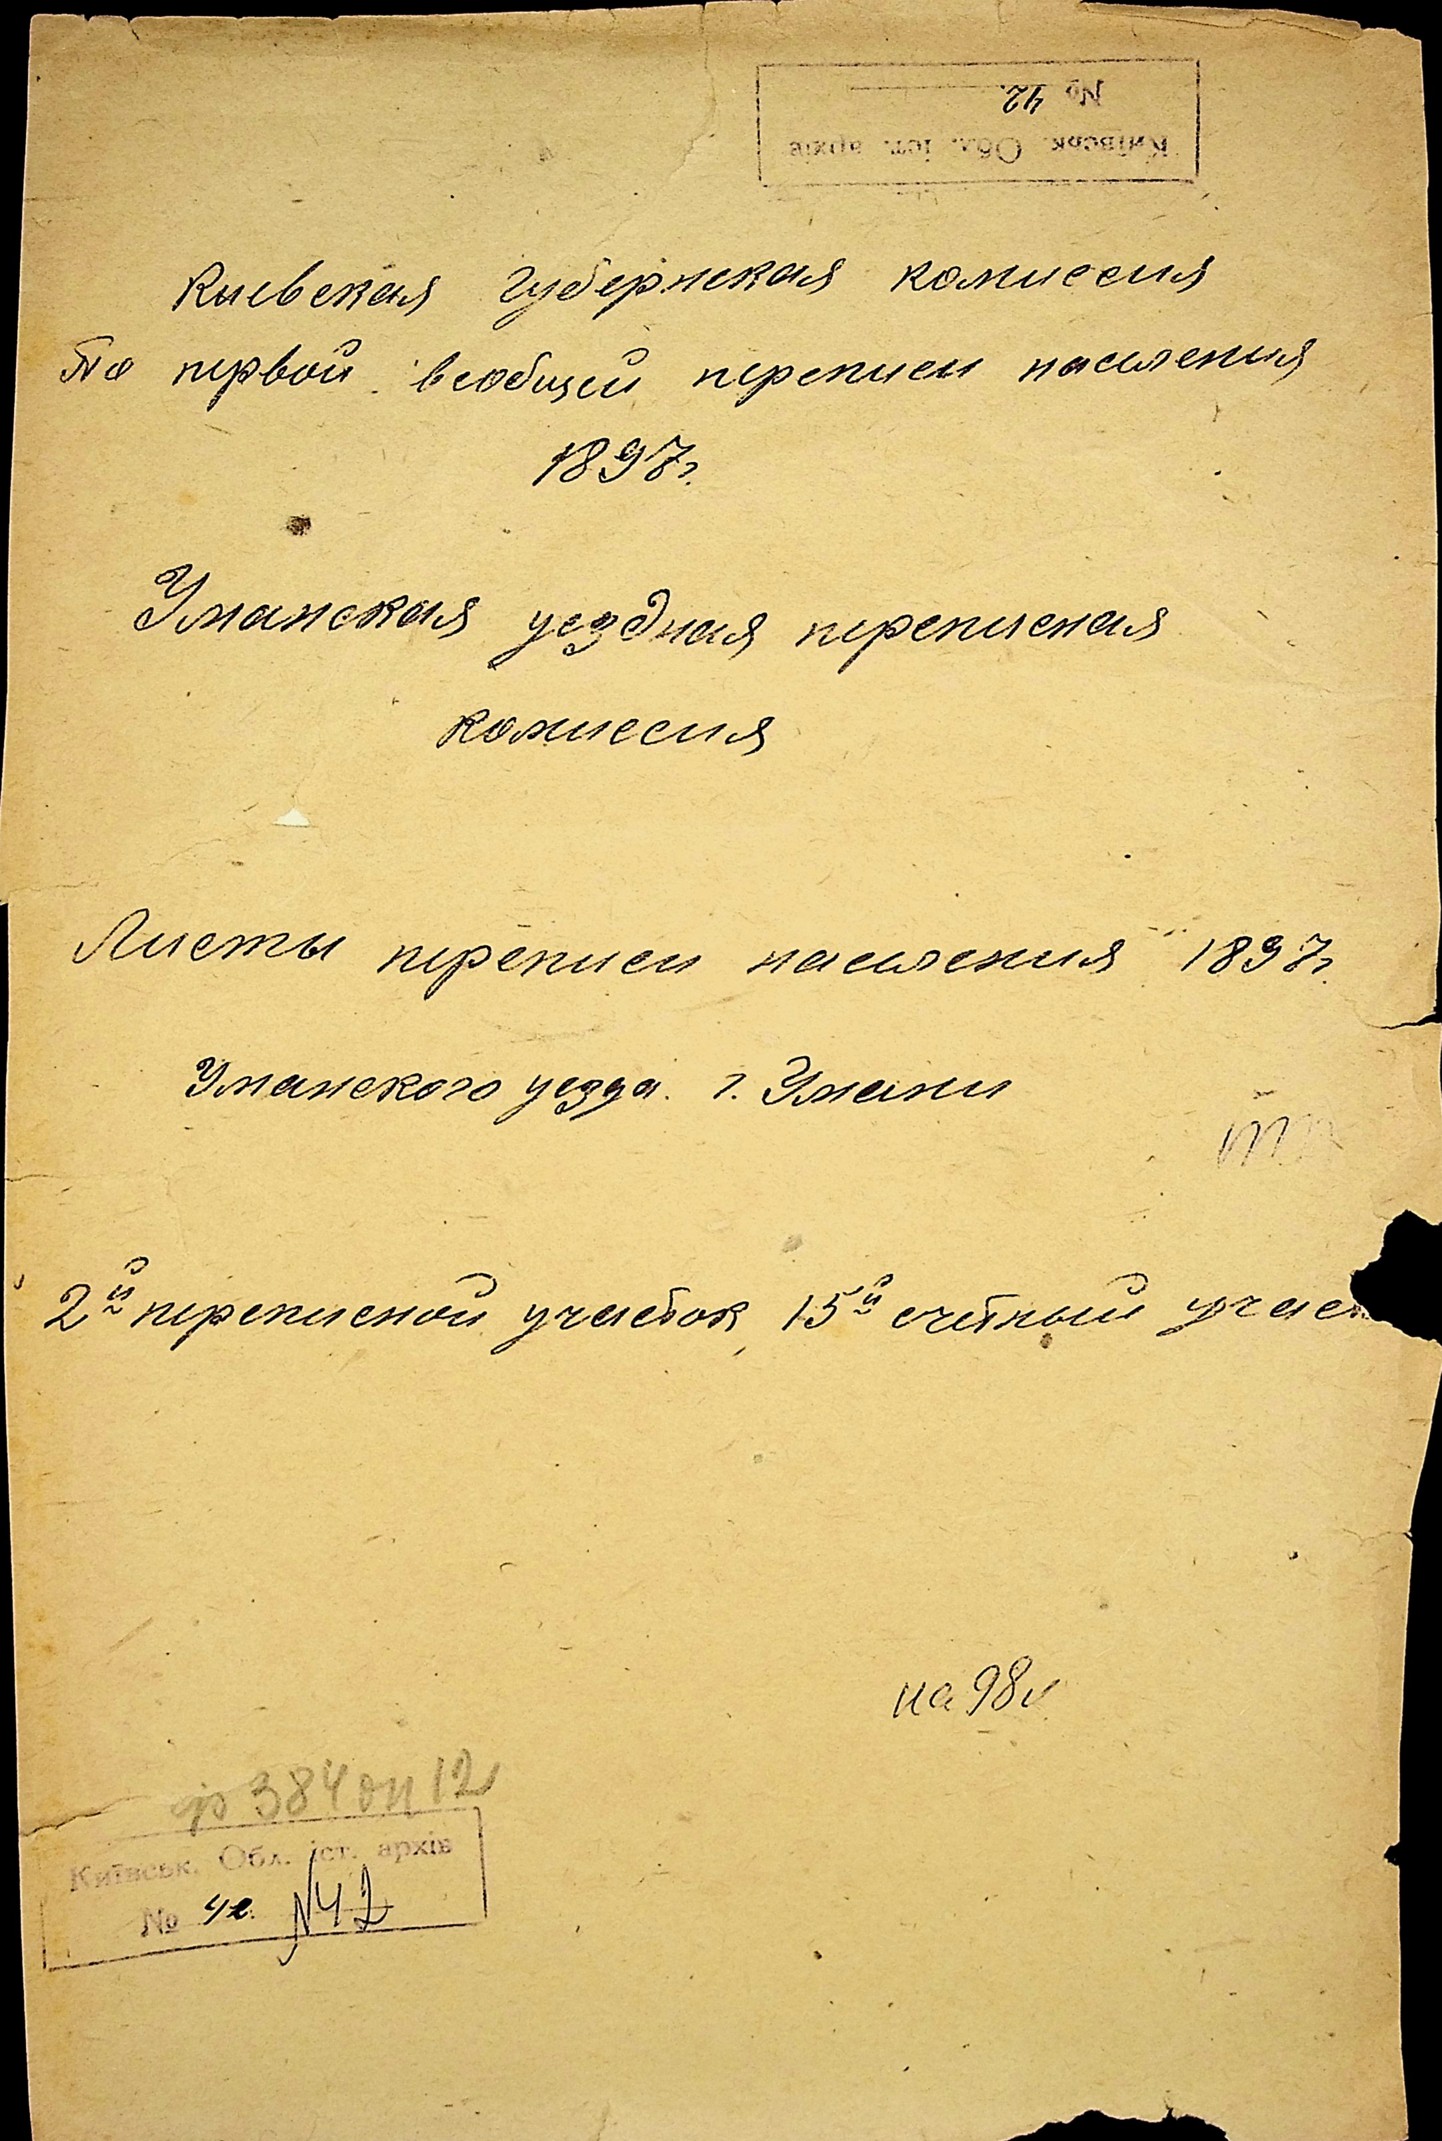 № 42.
Київськ. Обл. іст. архів
Киевская губернская комиссия
По первой всеобщей переписи населения
1897г.
Уманская уездная переписная
комиссия
Листы переписи населения 1897г.
Уманского уезда. г. Умани
2й переписной участок, 15й счётный участ
на 98л
ф 384 оп 12
Київськ. Обл. іст. архів
№ 42. №42